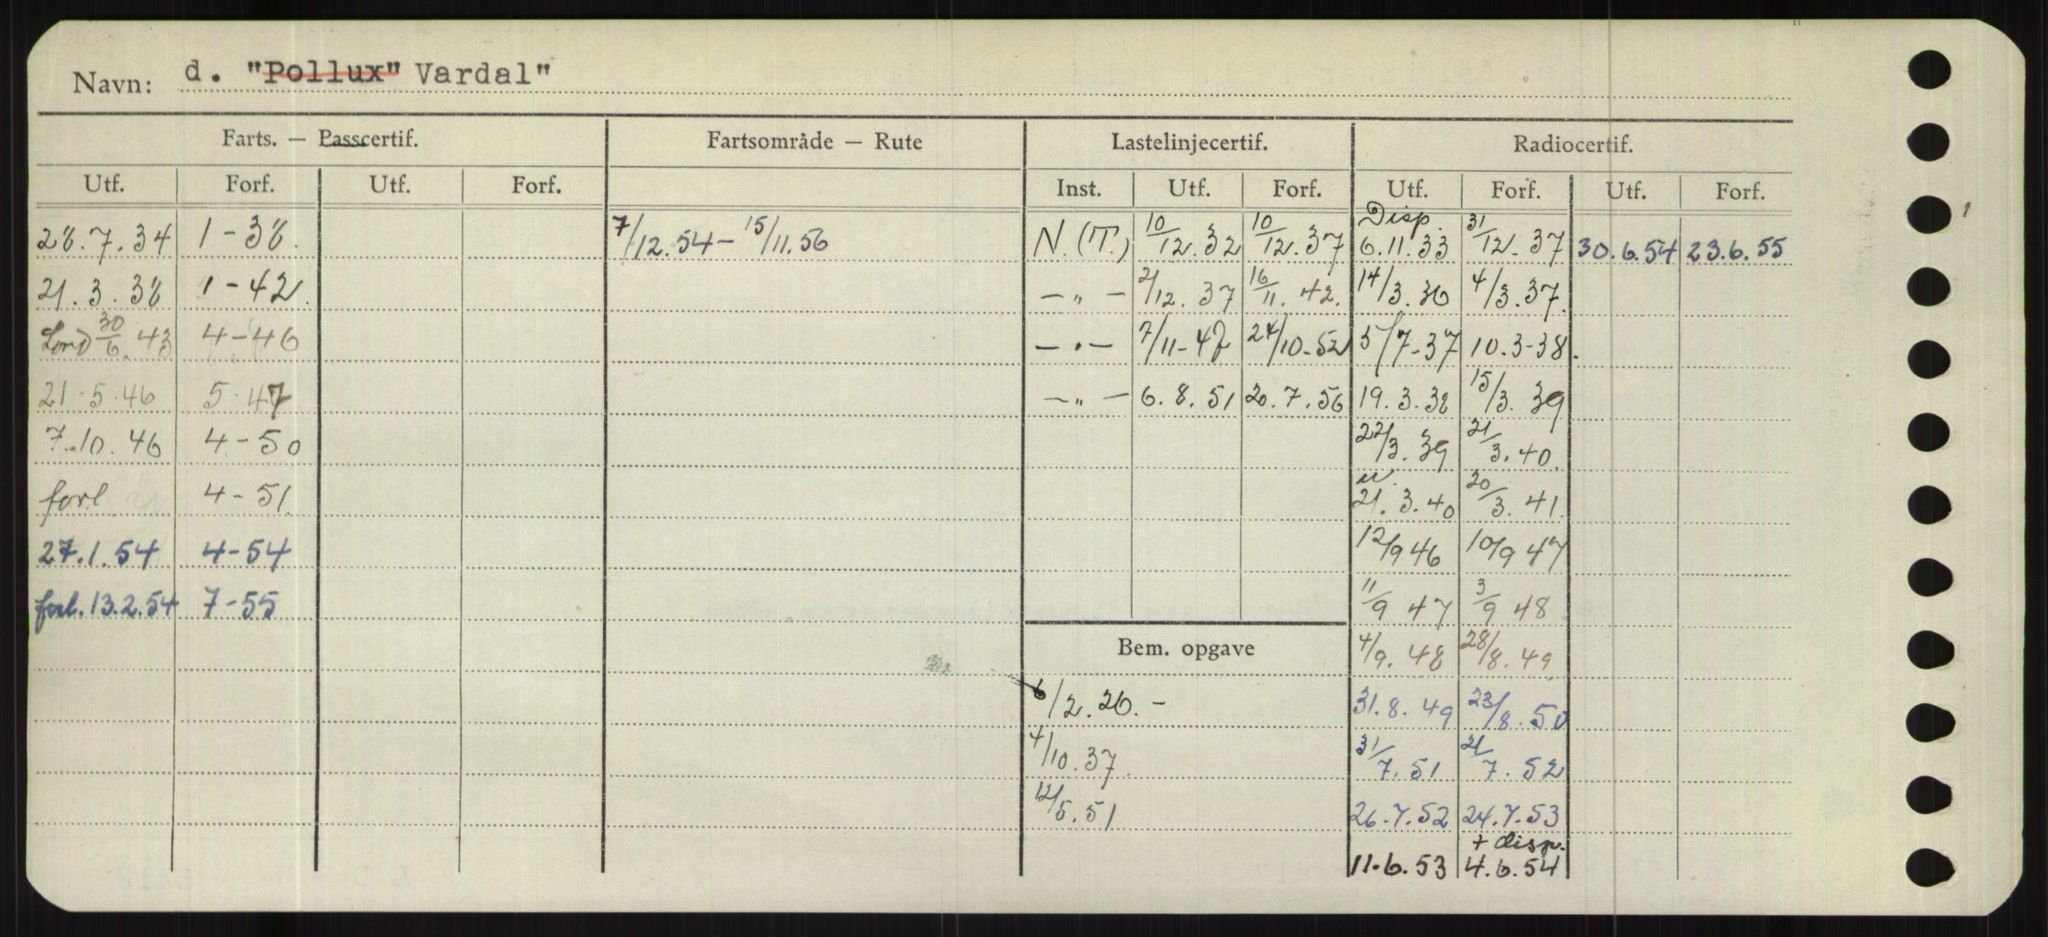 Navn: d. "Pollux" Vardal"
Farts. — Passcertif. Fartsområde — Rute Lastelinjecertif. Radiocertif.
Utf. Forf. Utf. Forf. Inst. Utf. Forf. Utf. Forf. Utf. Forf.
28.7.34 1-38. 7/12.54 - 15/11.56 N.(T.) 10/12.32 10/12.37 Disp. 6.11.33 31/12.37 30.6.54 23.6.55
21.3.38 1-42. -"- 2/12.37 16/11.42. 14/3.36 4/3.37.
30/6.43 4-46 -"- 7/11-47 24/10-52 5/7-37 10.3-38.
21.5.46 5.47 -"- 6.8.51 20.7.56 19.3.38 15/3.39
7.10.46 4-50 22/3.39 21/3.40.
forl 4-51 21.3.40 20/3.41.
27.1.54 4-54 12/9 46 10/9 47
forl.13.2.54 7-55 11/9 47 3/9 48
Bem. opgave 4/9.48 28/8.49
6/2.26.- 31.8.49 23/8.50
4/10.37 31/7.51 21/7.52
12/5.51 26.7.52 24.7.53
+ disp.
11.6.53 4.6.54